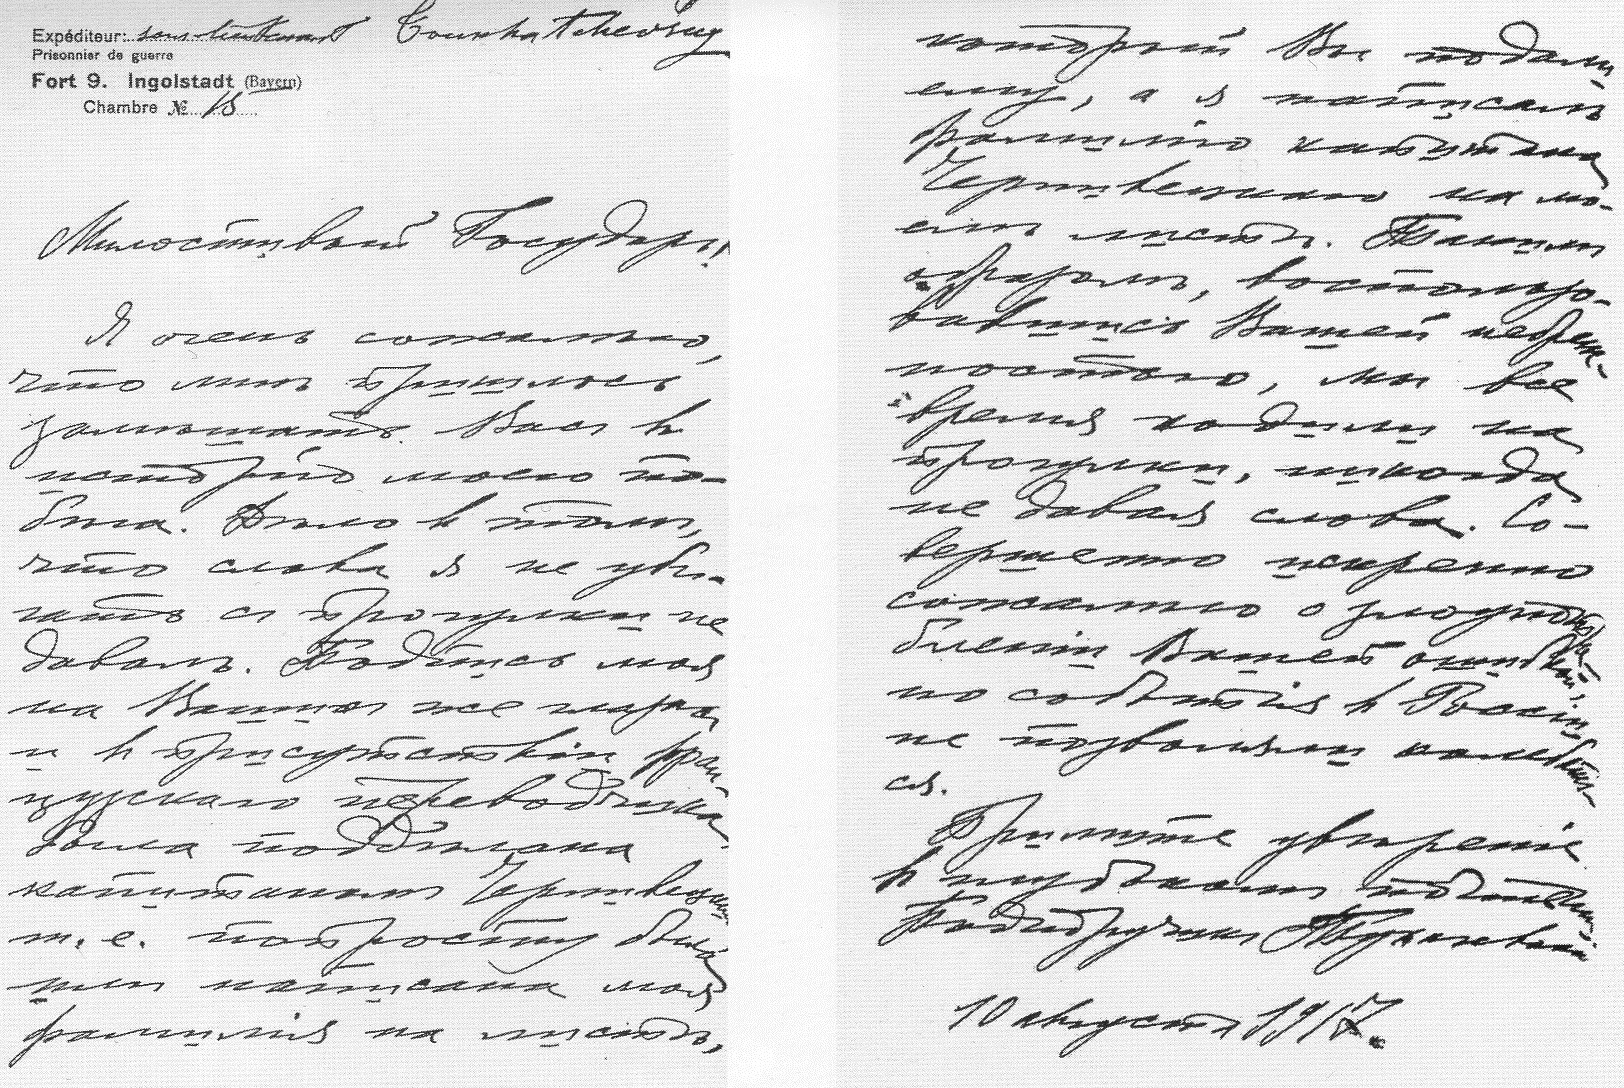 Expéditeur: sous-lieutenant Toukhatchevsky
Prisonnier de guerre
Fort 9. Ingolstadt (Bayern)
Chambre № 15
Милостивый Государь,
Я очень сожалѣю,
что мнѣ пришлось
замѣшать Васъ въ
исторію моего по-
бѣга. Дѣло въ томъ,
что слова я не убѣ-
гать съ прогулки не
давалъ. Подпись моя
на Вашихъ же глазахъ
и въ присутствіи фран-
цузскаго переводчика
была поддѣлана
капитаномъ Чернивецкимъ
т. е. попросту была
имъ написана моя
фамилія на листѣ,
который Вы подали
ему, а я написалъ
фамилію капитана
Чернивецкаго на мо-
емъ листѣ. Такимъ
образомъ, воспользо-
вавшись Вашей небреж-
ностью, мы все
время ходили на
прогулки, никогда
не давая слова. Со-
вершенно искренно
сожалѣю о злоупотре-
бленіи Вашей ошибкой,
но событія въ Россіи
не позволяли колебать-
ся.
Примите увѣреніе
въ глубокомъ почтеніи
Подпоручикъ Тухачевскій
10 августа 1917.